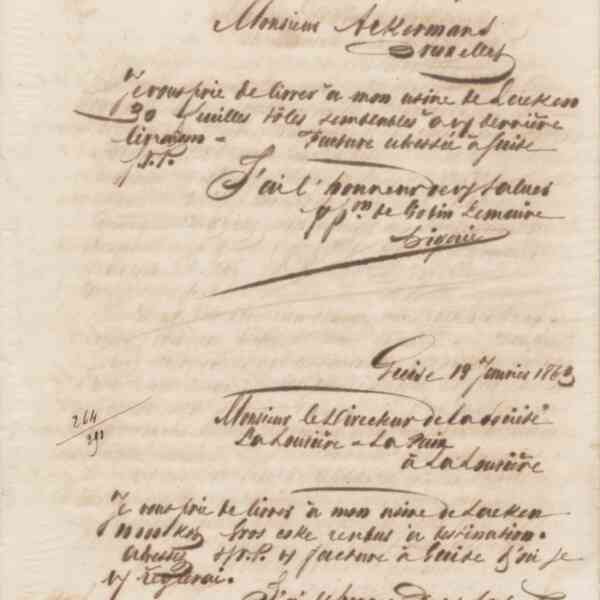 Monsieur Ackermans
Bruxelles
Je vous prie de livrer à mon usine de Laeken
30 feuilles tôles semblables à vy dernière
livraison = Facture adressée à Guise
S.V.P.
J'ai l'honneur de vs saluer
pp on de Godin Lemaire
Guise 19 Janvier 1863
264
391
Monsieur le Directeur de la Société
La Louvière = La Paix
à La Louvière
Je vous prie de livrer à mon usine de Laeken
gros coke rendus à destination.
adressez S.V.P. vs facture à Guise d'où je
vs réglerai.